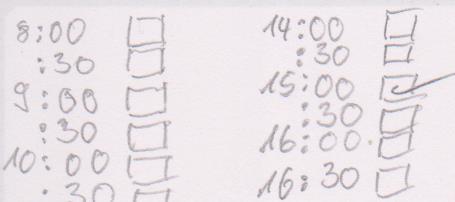 8:00 ☐
:30 ☐
9:00 ☐
:30 ☐
10:00 ☐
:30 ☐
14:00 ☐
:30 ☐
15:00 ☑
:30 ☐
16:00 ☐
16:30 ☐